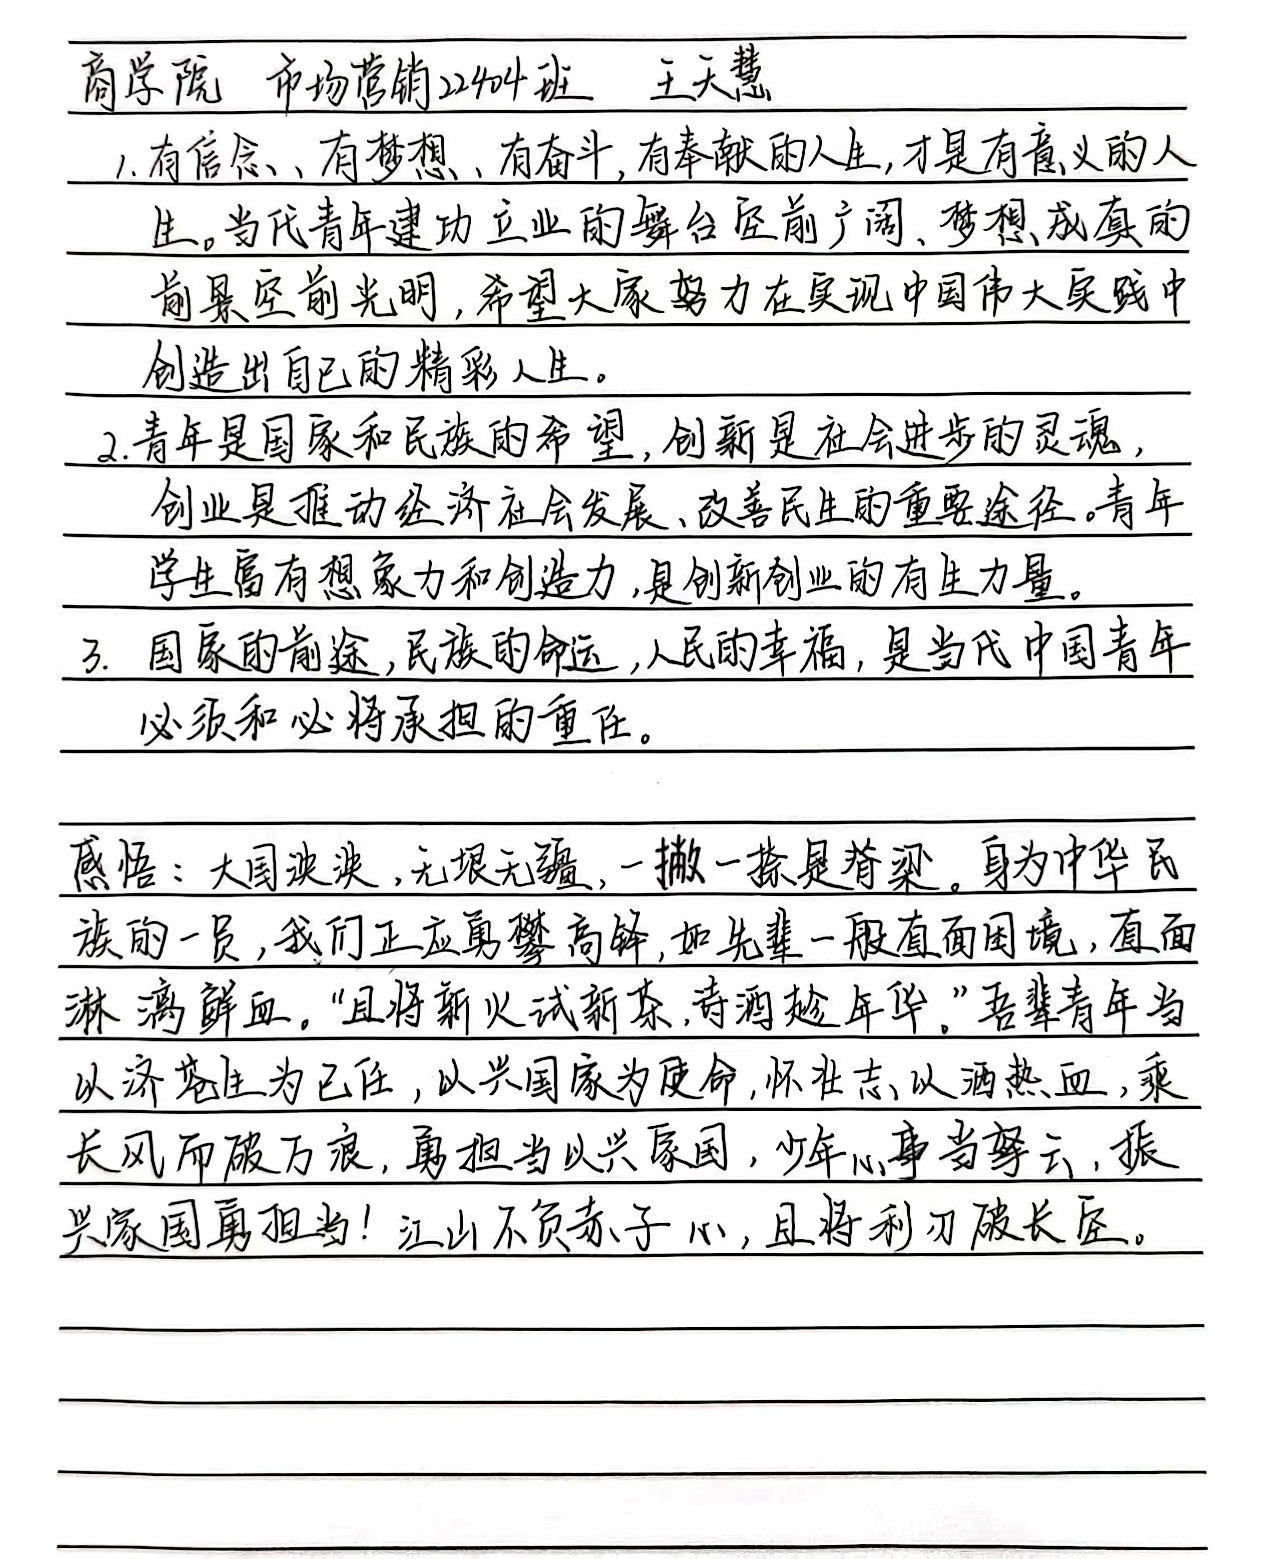 商学院 市场营销22404班 王天慧
1.有信念、、有梦想、有奋斗,有奉献的人生,才是有意义的人
生。当代青年建功立业的舞台空前广阔、梦想成真的
前景空前光明,希望大家努力在实现中国伟大实践中
创造出自己的精彩人生。
2.青年是国家和民族的希望,创新是社会进步的灵魂,
创业是推动经济社会发展、改善民生的重要途径。青年
学生富有想象力和创造力,是创新创业的有生力量。
3. 国家的前途,民族的命运,人民的幸福,是当代中国青年
必须和必将承担的重任。
感悟:大国泱泱,无垠无疆,一撇一捺是脊梁。身为中华民
族的一员,我们正应勇攀高锋,如先辈一般直面困境,直面
淋漓鲜血。“且将新火试新茶,诗酒趁年华。”吾辈青年当
以济苍生为己任,以兴国家为使命,怀壮志、以洒热血,乘
长风而破万浪,勇担当以兴家国,少年心事当拏云,振
兴家国勇担当!江山不负赤子心,且将利刃破长空。